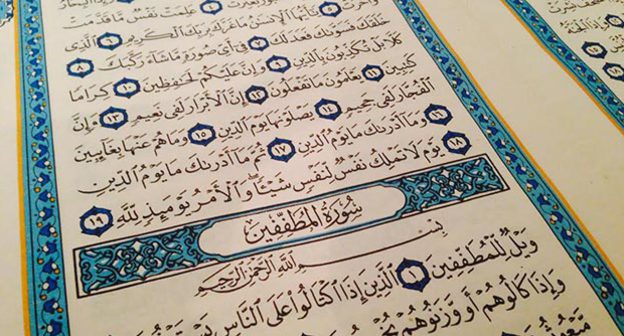 بُعْثِرَتْ ٤ عَلِمَتْ نَفْسٌ مَّا قَدَّمَتْ
وَأَخَّرَتْ ٥ يَٰٓأَيُّهَا ٱلْإِنسَٰنُ مَا غَرَّكَ بِرَبِّكَ ٱلْكَرِيمِ ٦ ٱلَّذِى
خَلَقَكَ فَسَوَّىٰكَ فَعَدَلَكَ ٧ فِىٓ أَىِّ صُورَةٍ مَّا شَآءَ رَكَّبَكَ ٨
كَلَّا بَلْ تُكَذِّبُونَ بِٱلدِّينِ ٩ وَإِنَّ عَلَيْكُمْ لَحَٰفِظِينَ ١٠ كِرَامًا
كَٰتِبِينَ ١١ يَعْلَمُونَ مَا تَفْعَلُونَ ١٢ إِنَّ ٱلْأَبْرَارَ لَفِى نَعِيمٍ ١٣ وَإِنَّ
ٱلْفُجَّارَ لَفِى جَحِيمٍ ١٤ يَصْلَوْنَهَا يَوْمَ ٱلدِّينِ ١٥ وَمَا هُمْ عَنْهَا بِغَآئِبِينَ
١٦ وَمَآ أَدْرَىٰكَ مَا يَوْمُ ٱلدِّينِ ١٧ ثُمَّ مَآ أَدْرَىٰكَ مَا يَوْمُ ٱلدِّينِ
١٨ يَوْمَ لَا تَمْلِكُ نَفْسٌ لِّنَفْسٍ شَيْـًٔا وَٱلْأَمْرُ يَوْمَئِذٍ لِّلَّهِ ١٩
سُورَةُ المُطَفِّفِينَ
بِسْمِ ٱللَّهِ ٱلرَّحْمَٰنِ ٱلرَّحِيمِ
وَيْلٌ لِّلْمُطَفِّفِينَ ١ ٱلَّذِينَ إِذَا ٱكْتَالُوا۟ عَلَى ٱلنَّاسِ
وَإِذَا كَالُوهُمْ أَو وَّزَنُوهُمْ